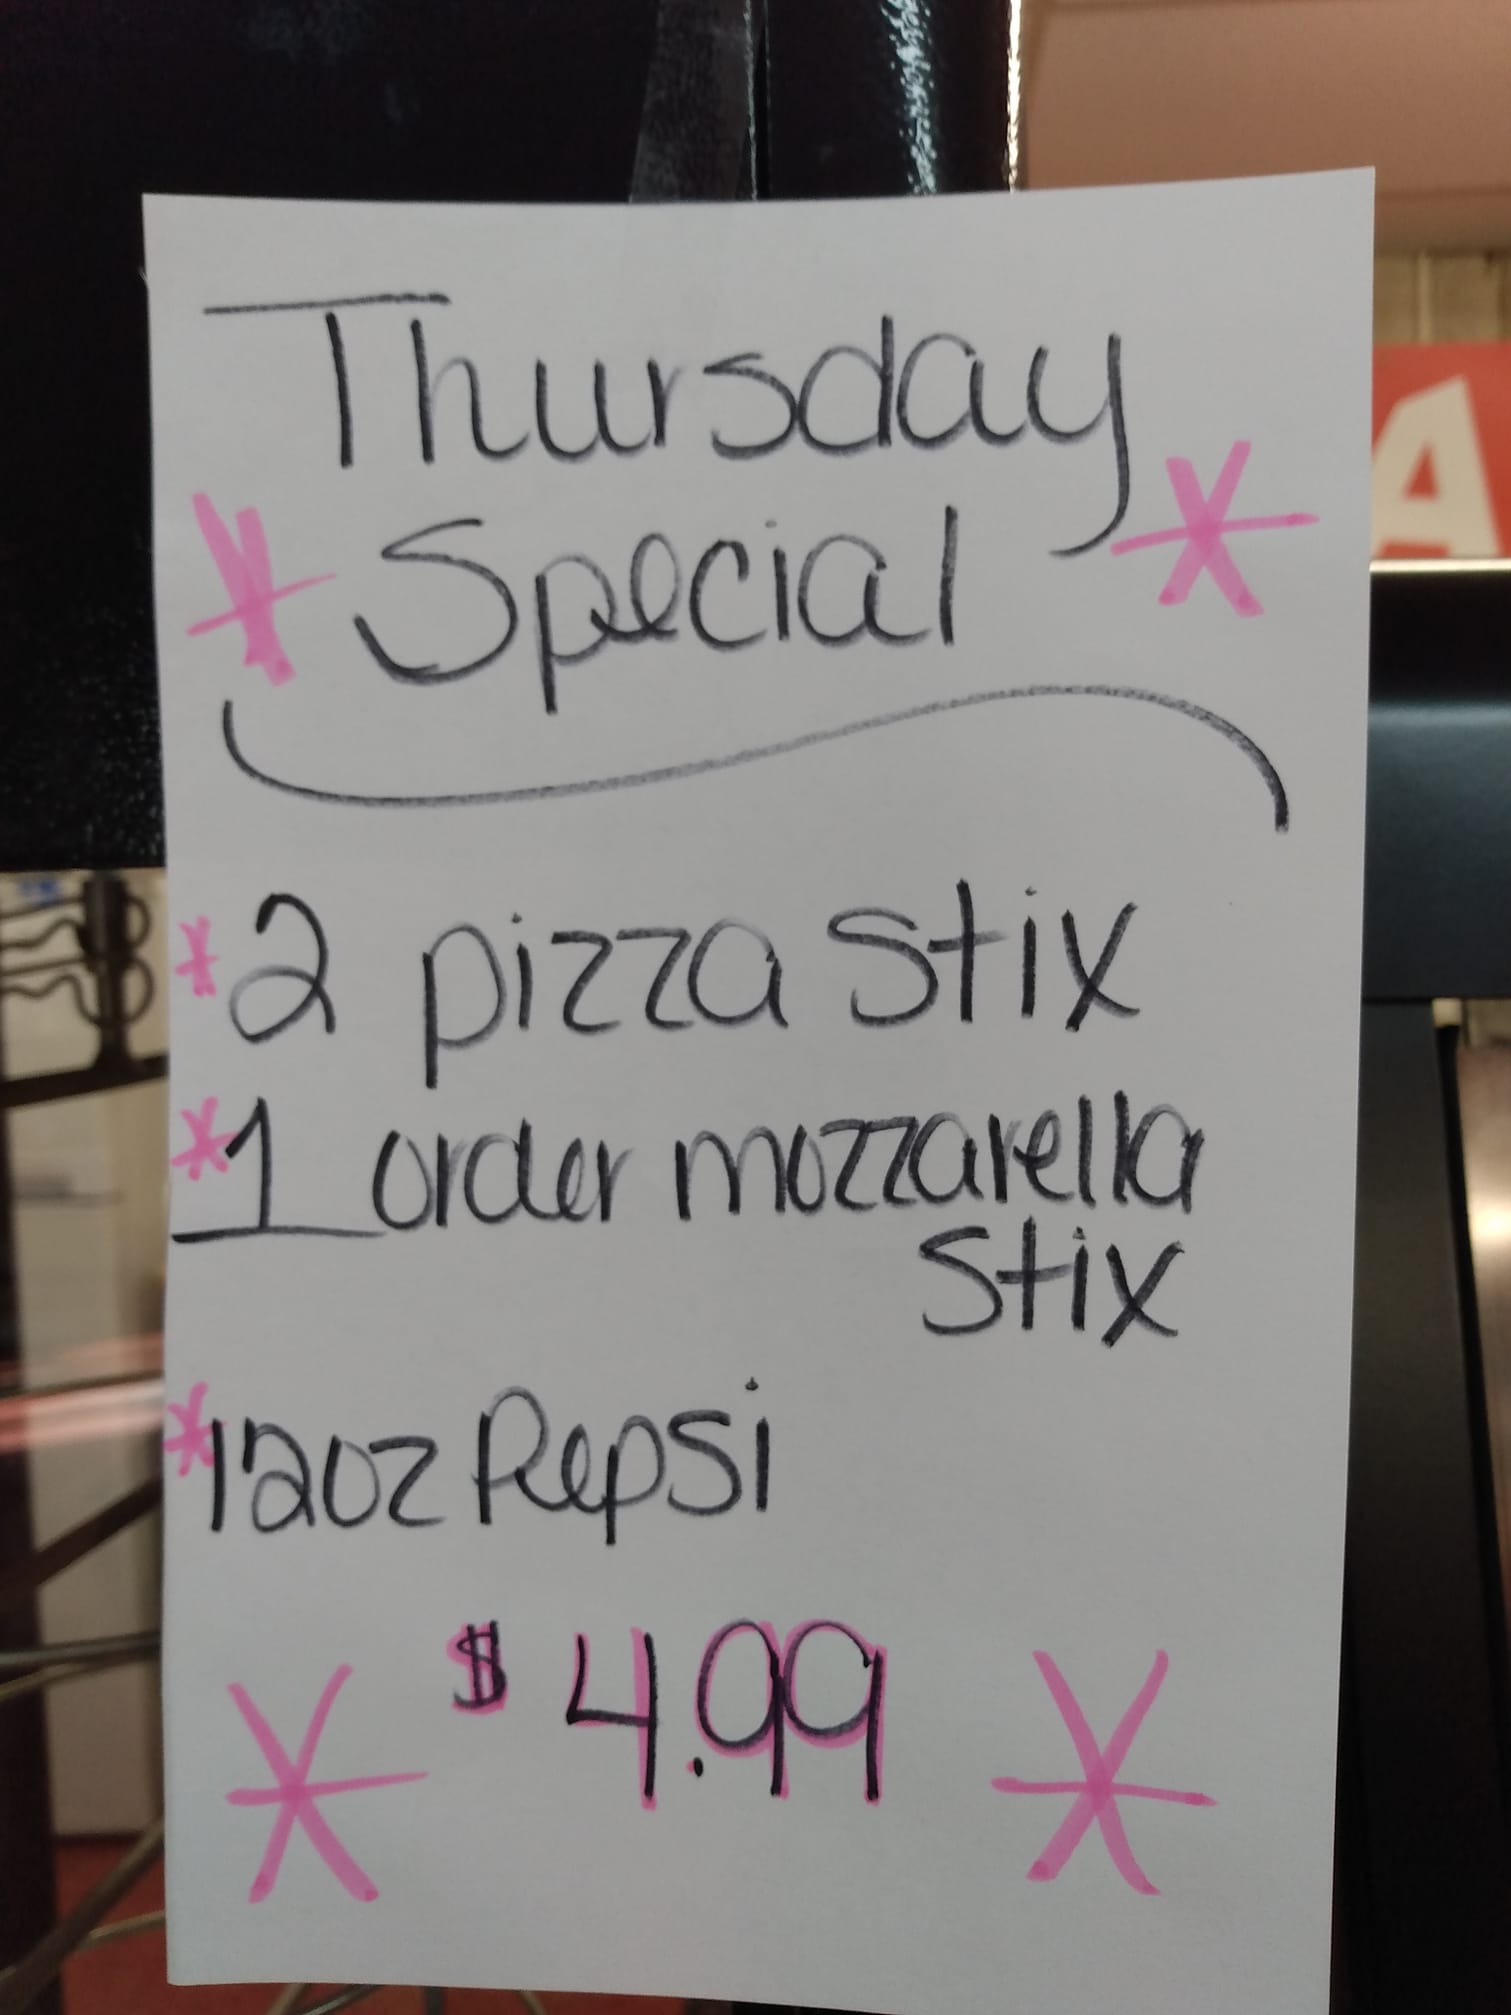 Thursday
Special
*2 pizza stix
*1 order mozzarella
stix
*12oz Pepsi
$4.99
A